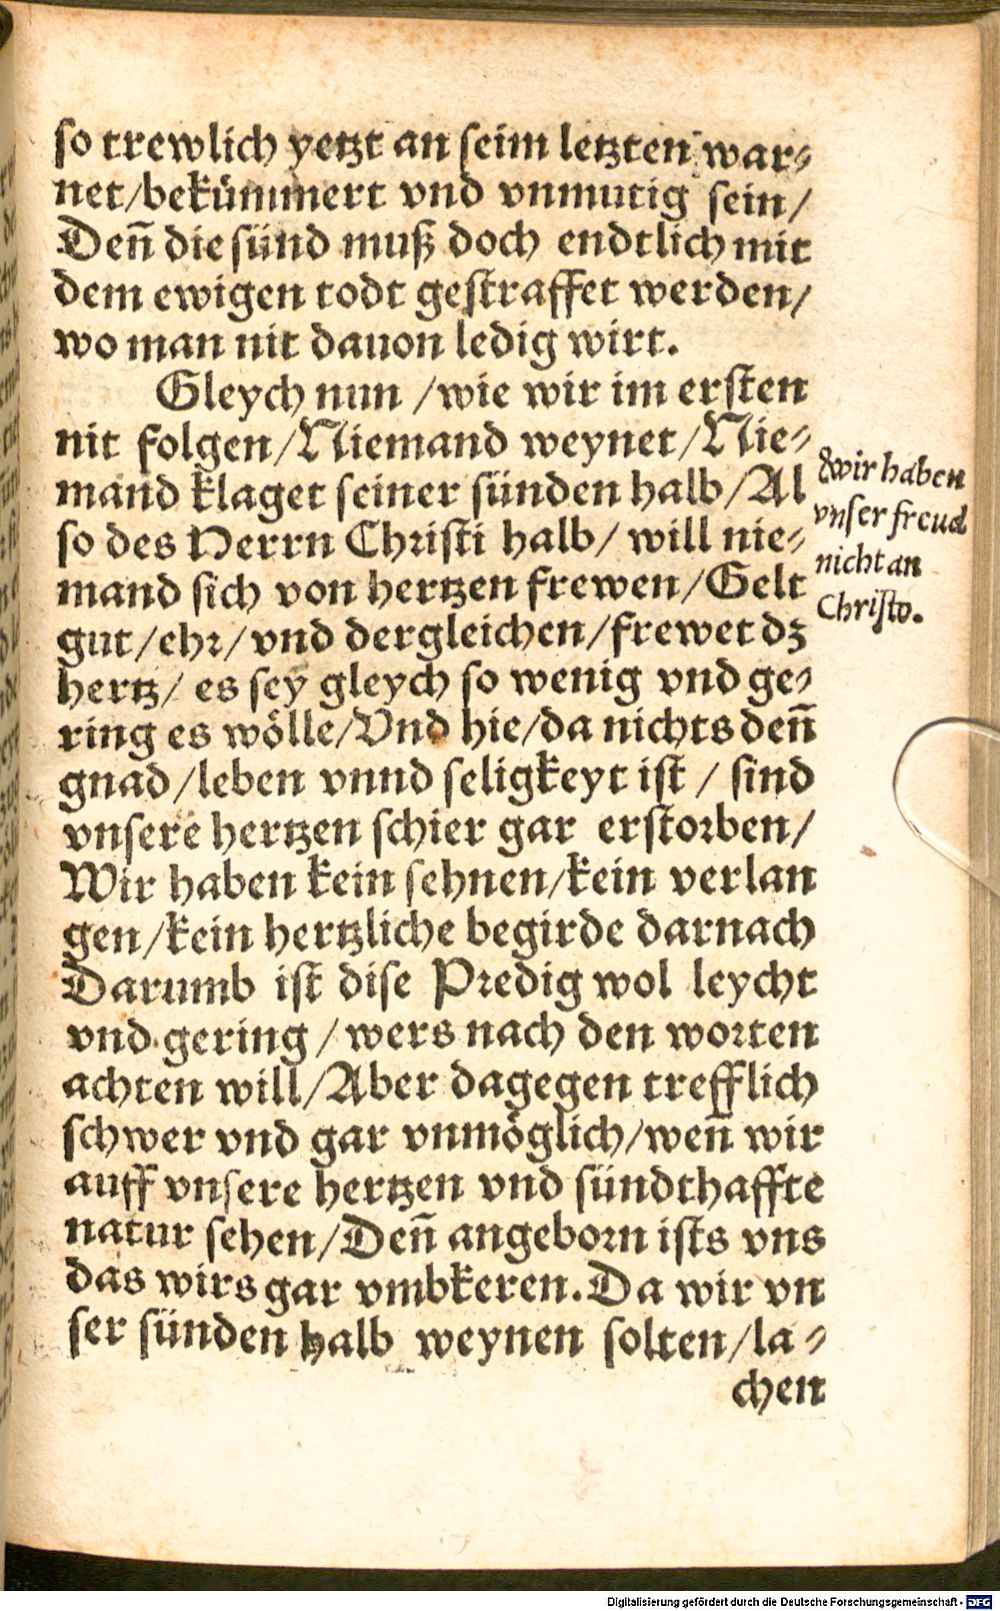 so trewlich yetzt an seim letzten war⸗
net/bekümmert vnd vnmutig sein/
Deñ die sünd muß doch endtlich mit
dem ewigen todt gestraffet werden/
wo man nit dauon ledig wirt.
Gleych nun /wie wir im ersten
nit folgen/Niemand weynet/Nie⸗
mand klaget seiner sünden halb/Al
so des Herrn Christi halb/ will nie⸗
mand sich von hertzen frewen/Gelt
gut/ehr/vnd dergleichen/frewet dz
hertz/ es sey gleych so wenig vnd ge⸗
ring es wölle/Vnd hie/da nichts deñ
gnad/leben vnnd seligkeyt ist / sind
vnsere hertzen schier gar erstorben/
Wir haben kein sehnen/kein verlan
gen/kein hertzliche begirde darnach
Darumb ist dise Predig wol leycht
vnd gering /wers nach den worten
achten will/Aber dagegen trefflich
schwer vnd gar vnmöglich/weñ wir
auff vnsere hertzen vnd sündthaffte
natur sehen/Deñ angeborn ists vns
das wirs gar vmbkeren.Da wir vn
ser sünden halb weynen solten/la⸗
chen
wir haben
vnser freud
nicht an
Christo.
Digitalisierung gefördert durch die Deutsche Forschungsgemeinschaft - DFG